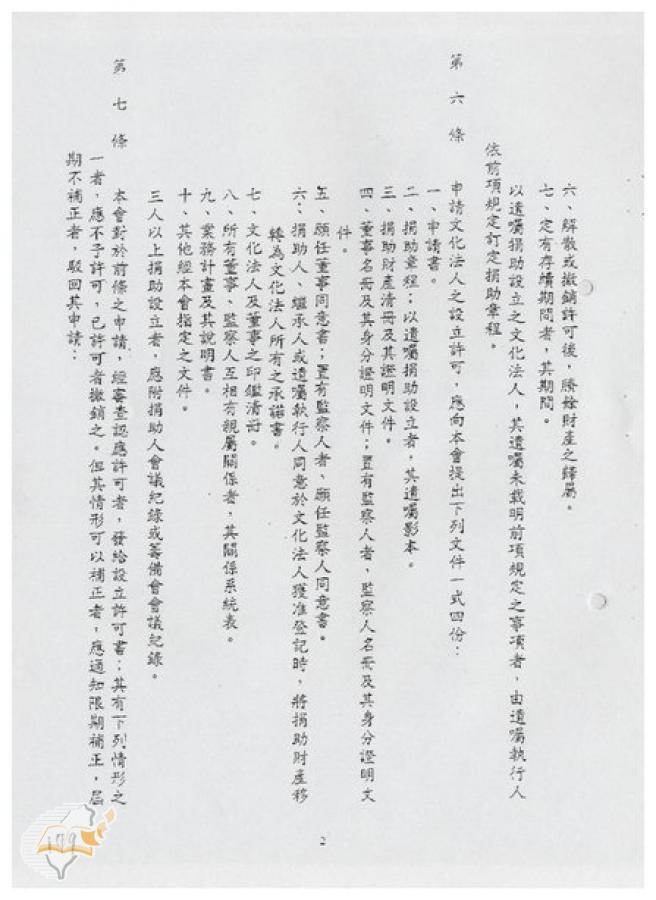 六、解散或撤銷許可後，賸餘財產之歸屬。
七、定有存續期間者，其期間。
以遺囑捐助設立之文化法人，其遺囑未載明前項規定之事項者，由遺囑執行人
依前項規定訂定捐助章程。
第六條　申請文化法人之設立許可，應向本會提出下列文件一式四份：
一、申請書。
二、捐助章程；以遺囑捐助設立者，其遺囑影本。
三、捐助財產清冊及其證明文件。
四、董事名冊及其身分證明文件；置有監察人者，監察人名冊及其身分證明文
件。
五、願任董事同意書；置有監察人者，願任監察人同意書。
六、捐助人、繼承人或遺囑執行人同意於文化法人獲准登記時，將捐助財產移
轉為文化法人所有之承諾書。
七、文化法人及董事之印鑑清冊。
八、所有董事、監察人互相有親屬關係者，其關係系統表。
九、業務計畫及其說明書。
十、其他經本會指定之文件。
三人以上捐助設立者，應附捐助人會議紀錄或籌備會會議紀錄。
第七條　本會對於前條之申請，經審查認應許可者，發給設立許可書；其有下列情形之
一者，應不予許可，已許可者撤銷之。但其情形可以補正者，應通知限期補正，屆
期不補正者，駁回其申請：
2
179